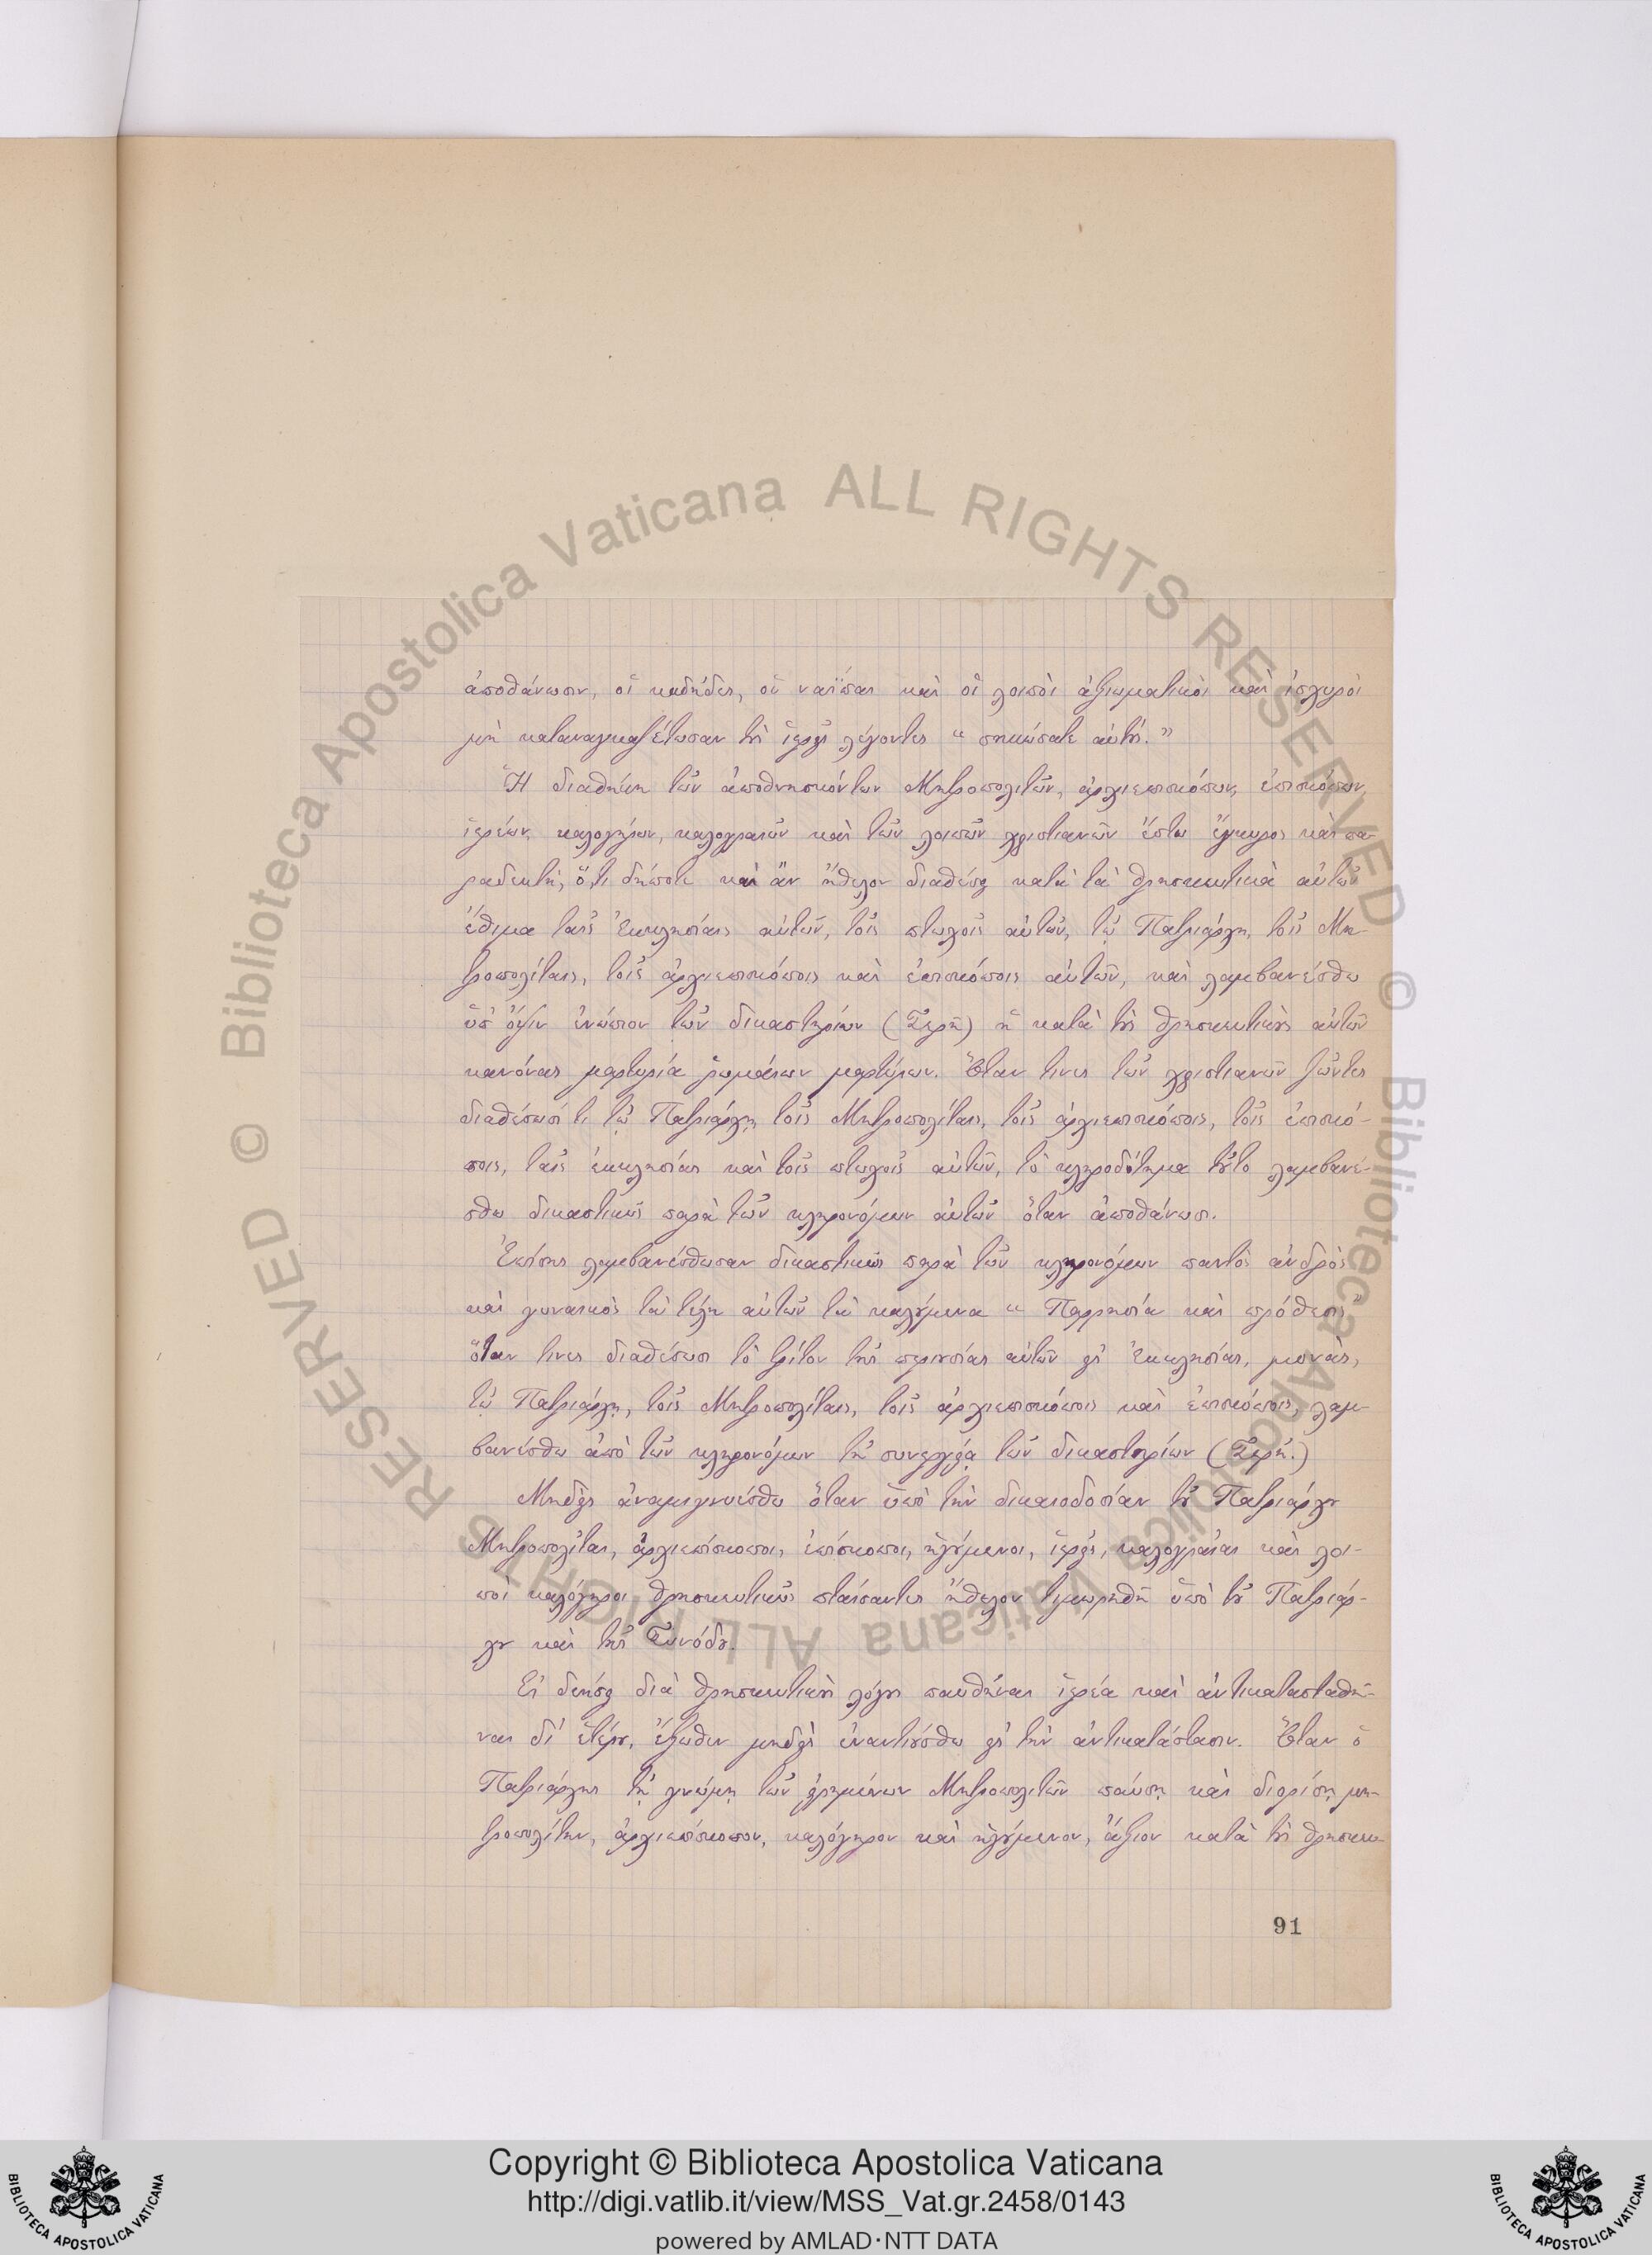 ἀποθάνωσιν, οἱ καδήδες, οἱ ναΐπαι καὶ οἱ λοιποὶ ἀξιωματικοὶ καὶ ἰσχυροὶ
μὴ καταναγκαζέτωσαν τοὺς ἱερεῖς λέγοντες “ σηκώσατε αὐτούς.”
Ἡ διαθήκη τῶν ἀποθνησκόντων Μητροπολιτῶν, ἀρχιεπισκόπων, ἐπισκόπων,
ἱερέων, καλογήρων, καλογραιῶν καὶ τῶν λοιπῶν χριστιανῶν ἔστω ἔγκυρος καὶ πα-
ραδεκτή, ὅ,τι δήποτε καὶ ἂν ἤθελον διαθέσῃ κατὰ τὰ θρησκευτικὰ αὐτῶν
ἔθιμα ταῖς Ἐκκλησίαις αὐτῶν, τοῖς πτωχοῖς αὐτῶν, τῷ Πατριάρχῃ, τοῖς Μη-
τροπολίταις, τοῖς ἀρχιεπισκόποις καὶ ἐπισκόποις αὐτῶν, καὶ λαμβανέσθω
ὑπ' ὄψιν ἐνώπιον τῶν δικαστηρίων (Σερῆ) ἢ κατὰ τοὺς θρησκευτικοὺς αὐτῶν
κανόνας μαρτυρία ῥωμαίων μαρτύρων. Ὅταν τινες τῶν χριστιανῶν ζῶντες
διαθέσωσί τι τῷ Πατριάρχῃ, τοῖς Μητροπολίταις, τοῖς ἀρχιεπισκόποις, τοῖς ἐπισκό-
ποις, ταῖς ἐκκλησίαις καὶ τοῖς πτωχοῖς αὐτῶν, τὸ κληροδότημα τοῦτο λαμβανέ-
σθω δικαστικῶς παρὰ τῶν κληρονόμων αὐτῶν ὅταν ἀποθάνωσι.
Ἐπίσης λαμβανέσθωσαν δικαστικῶς παρὰ τῶν κληρονόμων παντὸς ἀνδρὸς
καὶ γυναικὸς τὰ τέλη αὐτῶν τὰ καλούμενα “ Παρρησία καὶ πρόθεσις”
ὅταν τινες διαθέσωσι τὸ τρίτον τῆς περιουσίας αὐτῶν εἰς Ἐκκλησίας, μονὰς,
τῷ Πατριάρχῃ, τοῖς Μητροπολίταις, τοῖς ἀρχιεπισκόποις καὶ ἐπισκόποις, λαμ-
βανέσθω ἀπὸ τῶν κληρονόμων τῇ συνεργείᾳ τῶν δικαστηρίων (Σερῆ.)
Μηδεὶς ἀναμιγνυέσθω ὅταν ὑπὸ τὴν δικαιοδοσίαν τοῦ Πατριάρχου
Μητροπολῖται, ἀρχιεπίσκοποι, ἐπίσκοποι, ἡγούμενοι, ἱερεῖς, καλογραῖαι καὶ λοι-
ποὶ καλόγηροι θρησκευτικῶς πταίσαντες ἤθελον τιμωρηθῆ ὑπὸ τοῦ Πατριάρ-
χου καὶ τῆς Συνόδου.
Εἰ δεήσῃ διὰ θρησκευτικοὺς λόγους παυθῆναι ἱερέα καὶ ἀντικατασταθῆ-
ναι δι' ἑτέρου, ἔξωθεν μηδεὶς ἐναντιούσθω εἰς τὴν ἀντικατάστασιν. Ὅταν ὁ
Πατριάρχης τῇ γνώμῃ τῶν εἰρημένων Μητροπολιτῶν παύσῃ καὶ διορίσῃ μη-
τροπολίτην, ἀρχιεπίσκοπον, καλόγηρον καὶ ἡγούμενον, ἄξιον κατὰ τοὺς θρησκευ-
91
© Biblioteca Apostolica Vaticana ALL RIGHTS RESERVED
© Biblioteca Apostolica Vaticana ALL RIGHTS RESERVED
Copyright © Biblioteca Apostolica Vaticana
http://digi.vatlib.it/view/MSS_Vat.gr.2458/0143
powered by AMLAD·NTT DATA
BIBLIOTECA APOSTOLICA VATICANA
BIBLIOTECA APOSTOLICA VATICANA